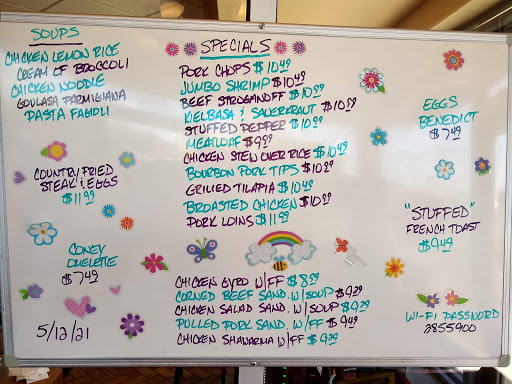 SOUPS
CHICKEN LEMON RICE
CREAM OF BROCCOLI
CHICKEN NOODLE
GOULASH PARMIGIANA
PASTA FAGIOLI
COUNTRY FRIED
STEAK & EGGS
$11.99
CONEY
OMELETTE
$7.49
5/12/21
SPECIALS
PORK CHOPS $10.49
JUMBO SHRIMP $10.49
BEEF STROGANOFF $10.99
KIELBASA & SAUERKRAUT $10.99
STUFFED PEPPER $10.99
MEATLOAF $9.99
CHICKEN STEW OVER RICE $10.49
BOURBON PORK TIPS $10.99
GRILLED TILAPIA $10.49
BROASTED CHICKEN $10.99
PORK LOINS $11.99
CHICKEN GYRO W/FF $8.99
CORNED BEEF SAND. W/SOUP $9.29
CHICKEN SALAD SAND. W/SOUP $9.29
PULLED PORK SAND. W/FF $9.49
CHICKEN SHAWARMA W/FF $9.29
EGGS
BENEDICT
$7.49
"STUFFED"
FRENCH TOAST
$9.49
WI-FI PASSWORD
2855900